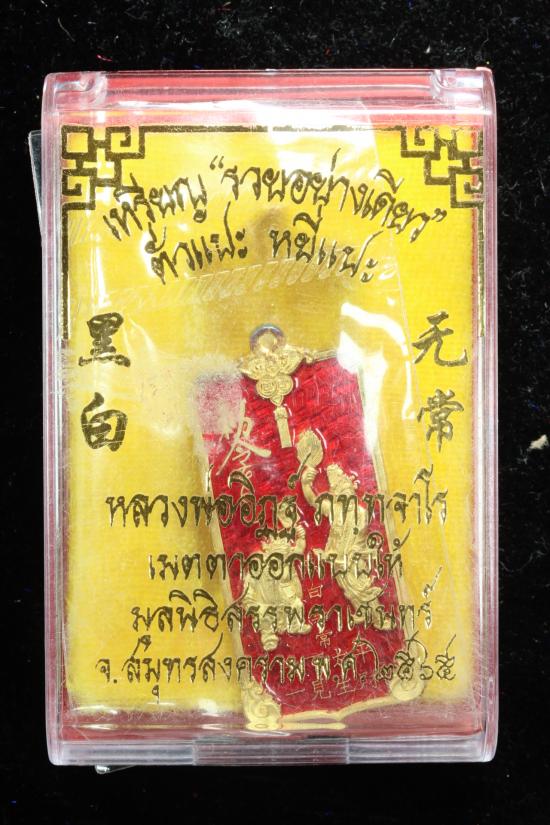 เหรียญ "รวยอย่างเดียว"
ตั่วแปะ หยี่แปะ
黑白
无常
หลวงพ่ออิฏฐ์ ภทฺทจาโร
เมตตาออกแบบให้
มูลนิธิสรรพราเชนทร์
จ.สมุทรสงคราม พ.ศ. ๒๕๖๕